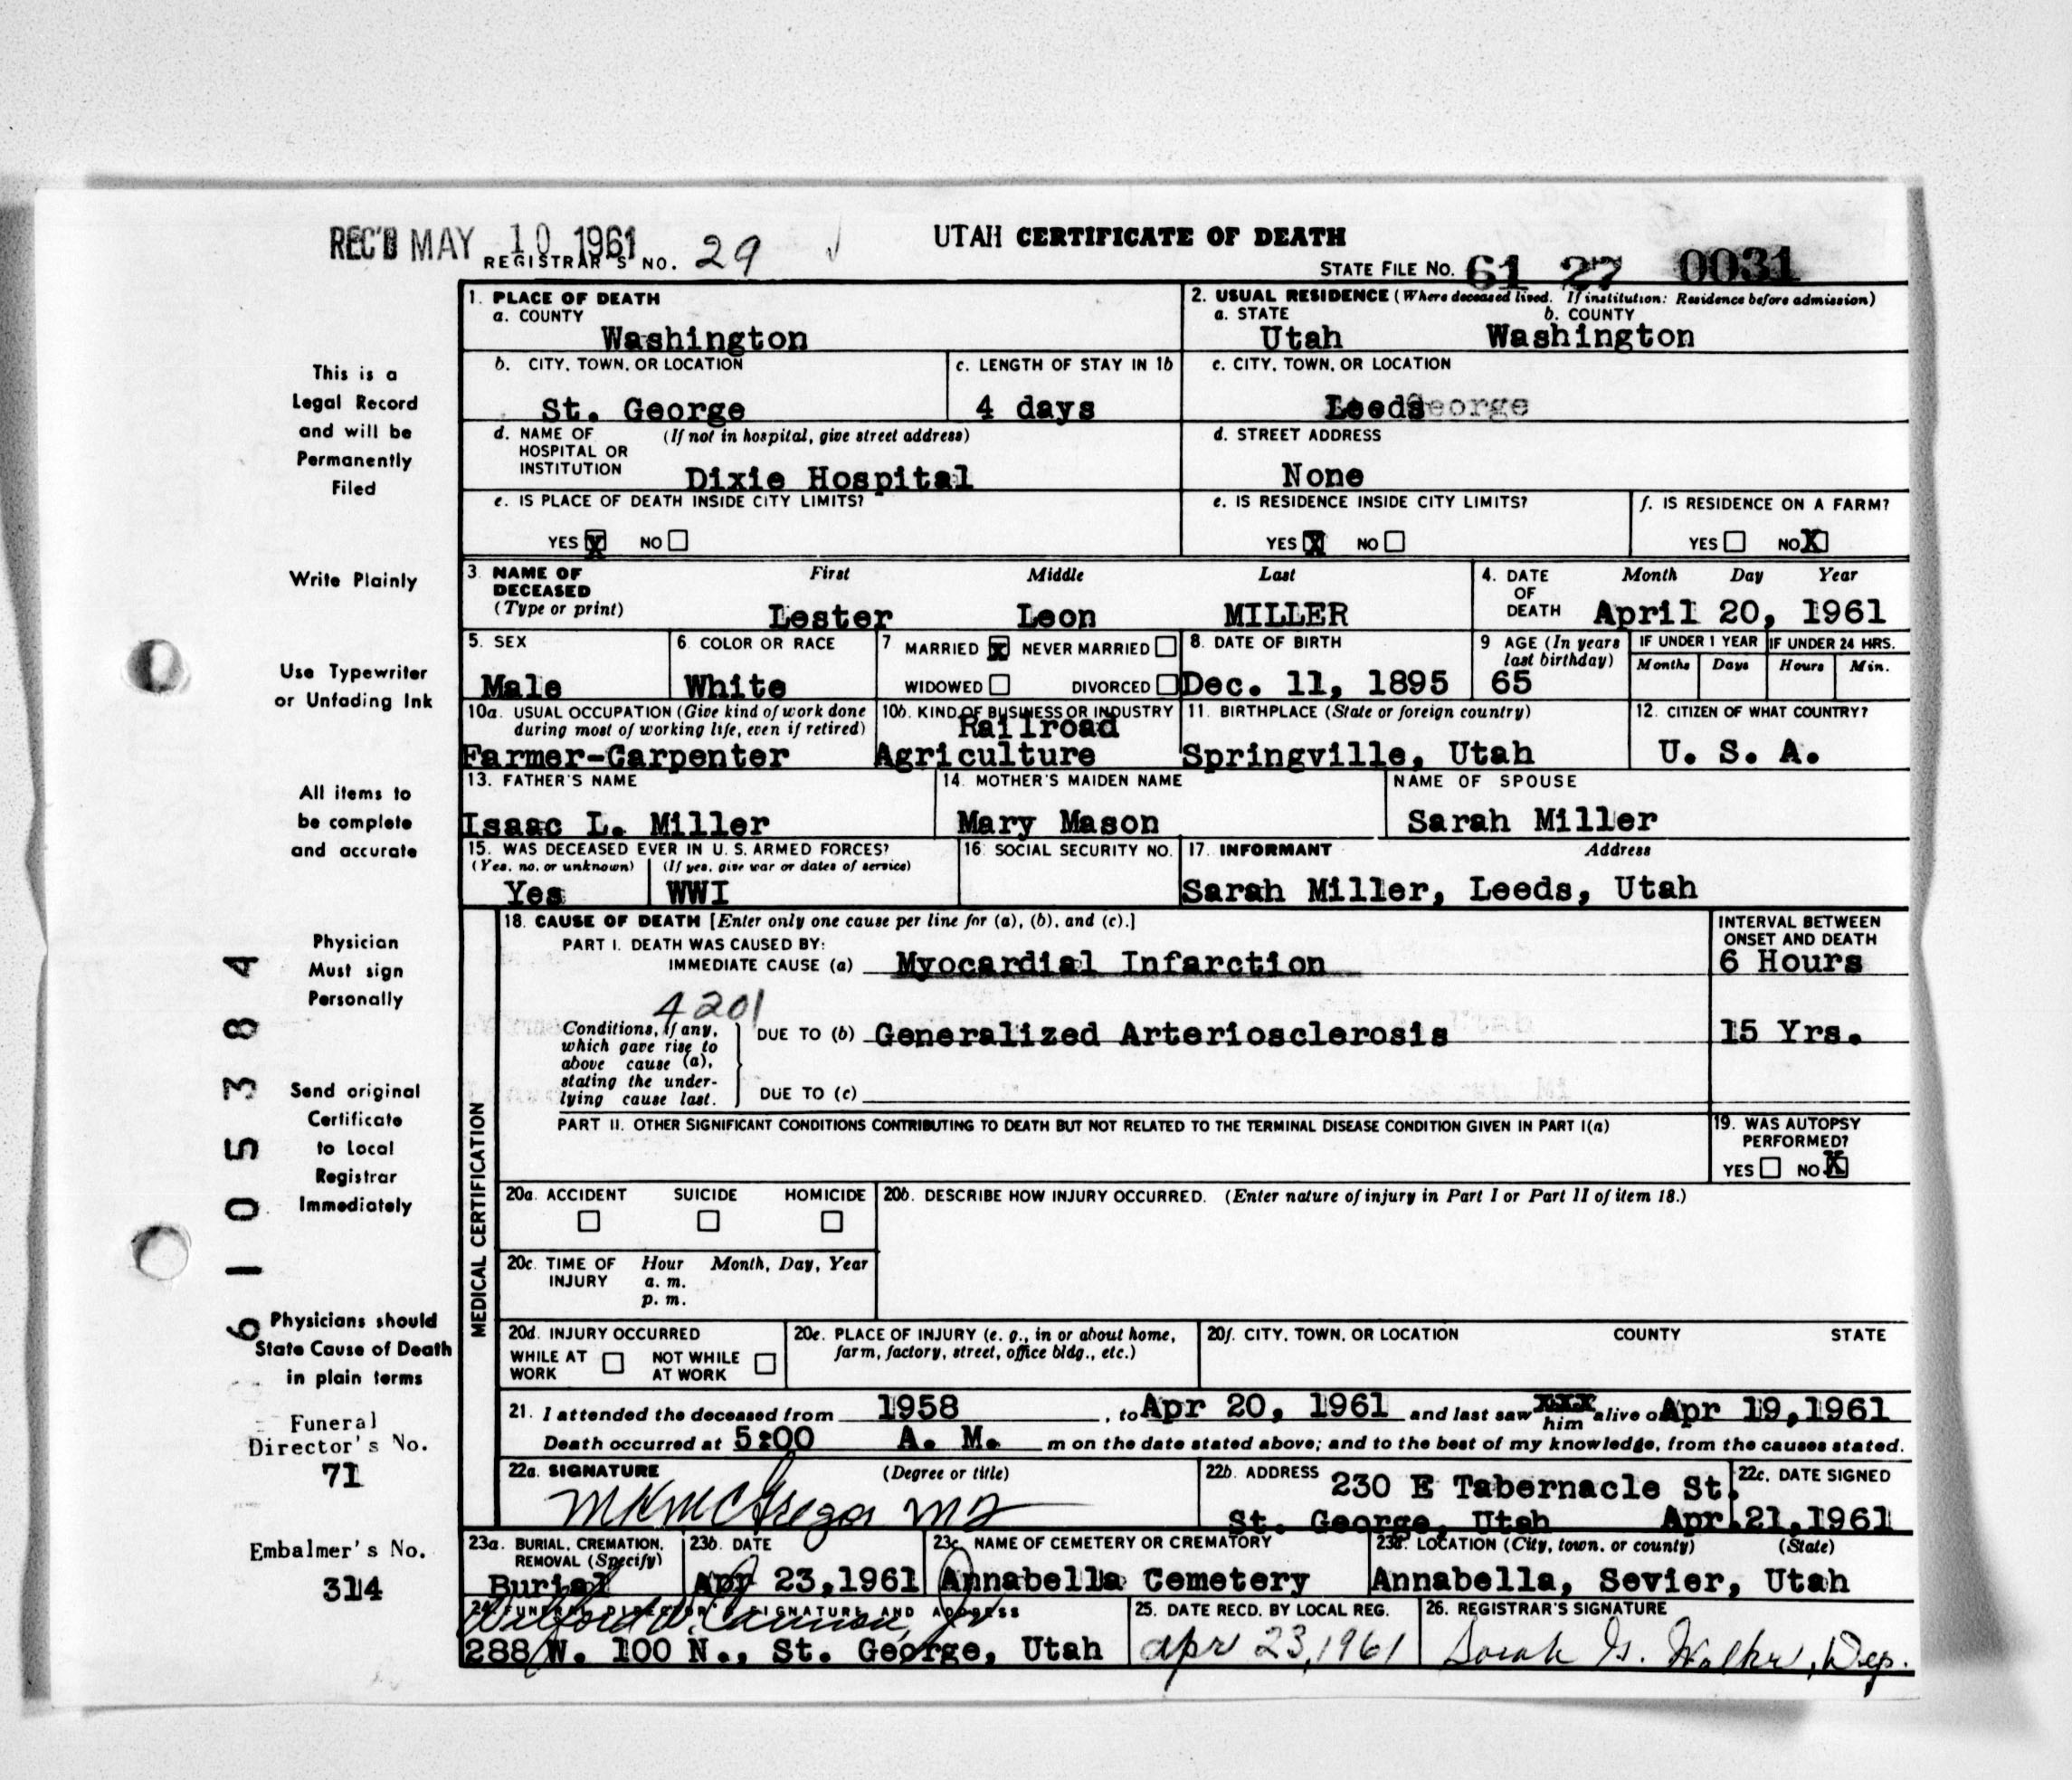 REC'D MAY 10 1961
REGISTRAR'S NO. 29
UTAH CERTIFICATE OF DEATH
STATE FILE NO. 61 27 0031
1. PLACE OF DEATH
a. COUNTY
Washington
2. USUAL RESIDENCE (Where deceased lived. If institution: Residence before admission)
a. STATE b. COUNTY
Utah Washington
b. CITY, TOWN, OR LOCATION
St. George
c. LENGTH OF STAY IN 1b
4 days
c. CITY, TOWN, OR LOCATION
Leeds
d. NAME OF HOSPITAL OR INSTITUTION (If not in hospital, give street address)
Dixie Hospital
d. STREET ADDRESS
None
e. IS PLACE OF DEATH INSIDE CITY LIMITS?
YES X NO
e. IS RESIDENCE INSIDE CITY LIMITS?
YES X NO
f. IS RESIDENCE ON A FARM?
YES NO X
3. NAME OF DECEASED (Type or print)
First Middle Last
Lester Leon MILLER
4. DATE OF DEATH Month Day Year
April 20, 1961
5. SEX
Male
6. COLOR OR RACE
White
7 MARRIED X NEVER MARRIED
WIDOWED DIVORCED
8. DATE OF BIRTH
Dec. 11, 1895
9 AGE (In years last birthday)
65
IF UNDER 1 YEAR IF UNDER 24 HRS.
Months Days Hours Min.
10a. USUAL OCCUPATION (Give kind of work done during most of working life, even if retired)
Farmer-Carpenter
10b. KIND OF BUSINESS OR INDUSTRY
Railroad
Agriculture
11. BIRTHPLACE (State or foreign country)
Springville, Utah
12. CITIZEN OF WHAT COUNTRY?
U. S. A.
13. FATHER'S NAME
Isaac L. Miller
14. MOTHER'S MAIDEN NAME
Mary Mason
NAME OF SPOUSE
Sarah Miller
15. WAS DECEASED EVER IN U. S. ARMED FORCES?
(Yes, no, or unknown) (If yes, give war or dates of service)
Yes WWI
16. SOCIAL SECURITY NO.
17. INFORMANT Address
Sarah Miller, Leeds, Utah
MEDICAL CERTIFICATION
18. CAUSE OF DEATH [Enter only one cause per line for (a), (b), and (c).]
PART I. DEATH WAS CAUSED BY:
IMMEDIATE CAUSE (a) Myocardial Infarction
INTERVAL BETWEEN ONSET AND DEATH
6 Hours
4201
Conditions, if any, which gave rise to above cause (a), stating the underlying cause last.
DUE TO (b) Generalized Arteriosclerosis
15 Yrs.
DUE TO (c)
PART II. OTHER SIGNIFICANT CONDITIONS CONTRIBUTING TO DEATH BUT NOT RELATED TO THE TERMINAL DISEASE CONDITION GIVEN IN PART I(a)
19. WAS AUTOPSY PERFORMED?
YES NO X
20a. ACCIDENT SUICIDE HOMICIDE
20b. DESCRIBE HOW INJURY OCCURRED. (Enter nature of injury in Part I or Part II of item 18.)
20c. TIME OF INJURY Hour Month, Day, Year
a. m.
p. m.
20d. INJURY OCCURRED
WHILE AT WORK NOT WHILE AT WORK
20e. PLACE OF INJURY (e. g., in or about home, farm, factory, street, office bldg., etc.)
20f. CITY, TOWN, OR LOCATION COUNTY STATE
21. I attended the deceased from 1958, to Apr 20, 1961 and last saw xxx him alive on Apr 19, 1961
Death occurred at 5:00 A. M. m on the date stated above; and to the best of my knowledge, from the causes stated.
22a. SIGNATURE (Degree or title)
M K McGregor MD
22b. ADDRESS 230 E Tabernacle St.
St. George, Utah
22c. DATE SIGNED
Apr. 21, 1961
23a. BURIAL, CREMATION, REMOVAL (Specify)
Burial
23b. DATE
Apr 23, 1961
23c. NAME OF CEMETERY OR CREMATORY
Annabella Cemetery
23d. LOCATION (City, town, or county) (State)
Annabella, Sevier, Utah
24. FUNERAL DIRECTOR'S SIGNATURE AND ADDRESS
288 W. 100 N., St. George, Utah
25. DATE RECD. BY LOCAL REG.
Apr 23, 1961
26. REGISTRAR'S SIGNATURE
Sarah G. Walker, Dep.
This is a
Legal Record
and will be
Permanently
Filed
Write Plainly
Use Typewriter
or Unfading Ink
All items to
be complete
and accurate
Physician
Must sign
Personally
Send original
Certificate
to Local
Registrar
Immediately
Physicians should
State Cause of Death
in plain terms
Funeral
Director's No.
71
Embalmer's No.
314
6105384